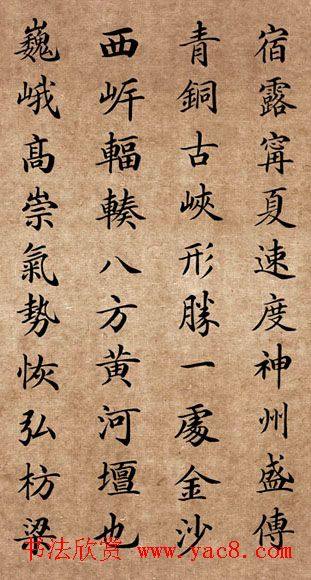 宿露甯夏速度神州盛傳
青銅古峽形勝一處金沙
西岓輻輳八方黃河壇也
巍峨高崇氣勢恢弘枋梁
书法欣赏 www.yac8.com